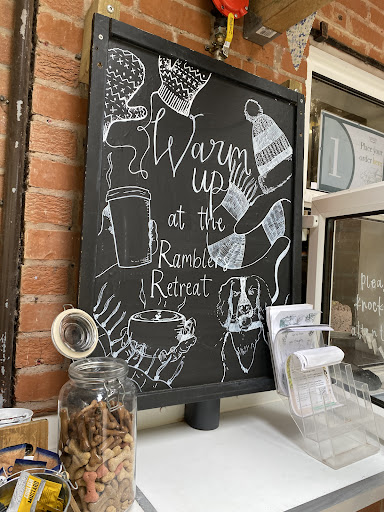 Warm
up
at the
Ramblers
Retreat
1
Place
your
order
Please
knock